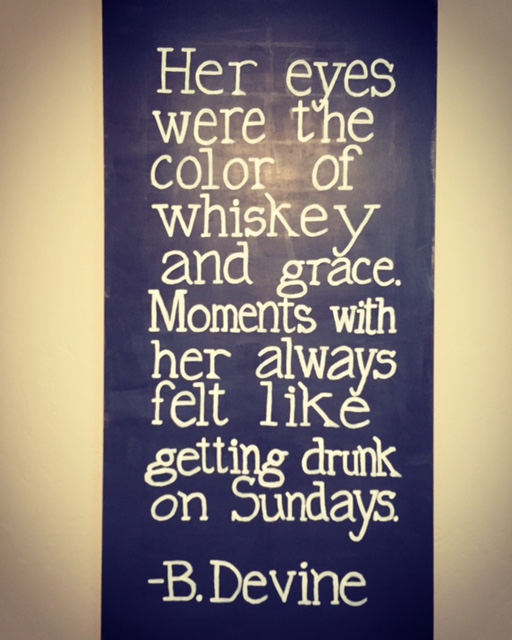 Her eyes
were the
color of
whiskey
and grace.
Moments with
her always
felt like
getting drunk
on Sundays.
-B. Devine